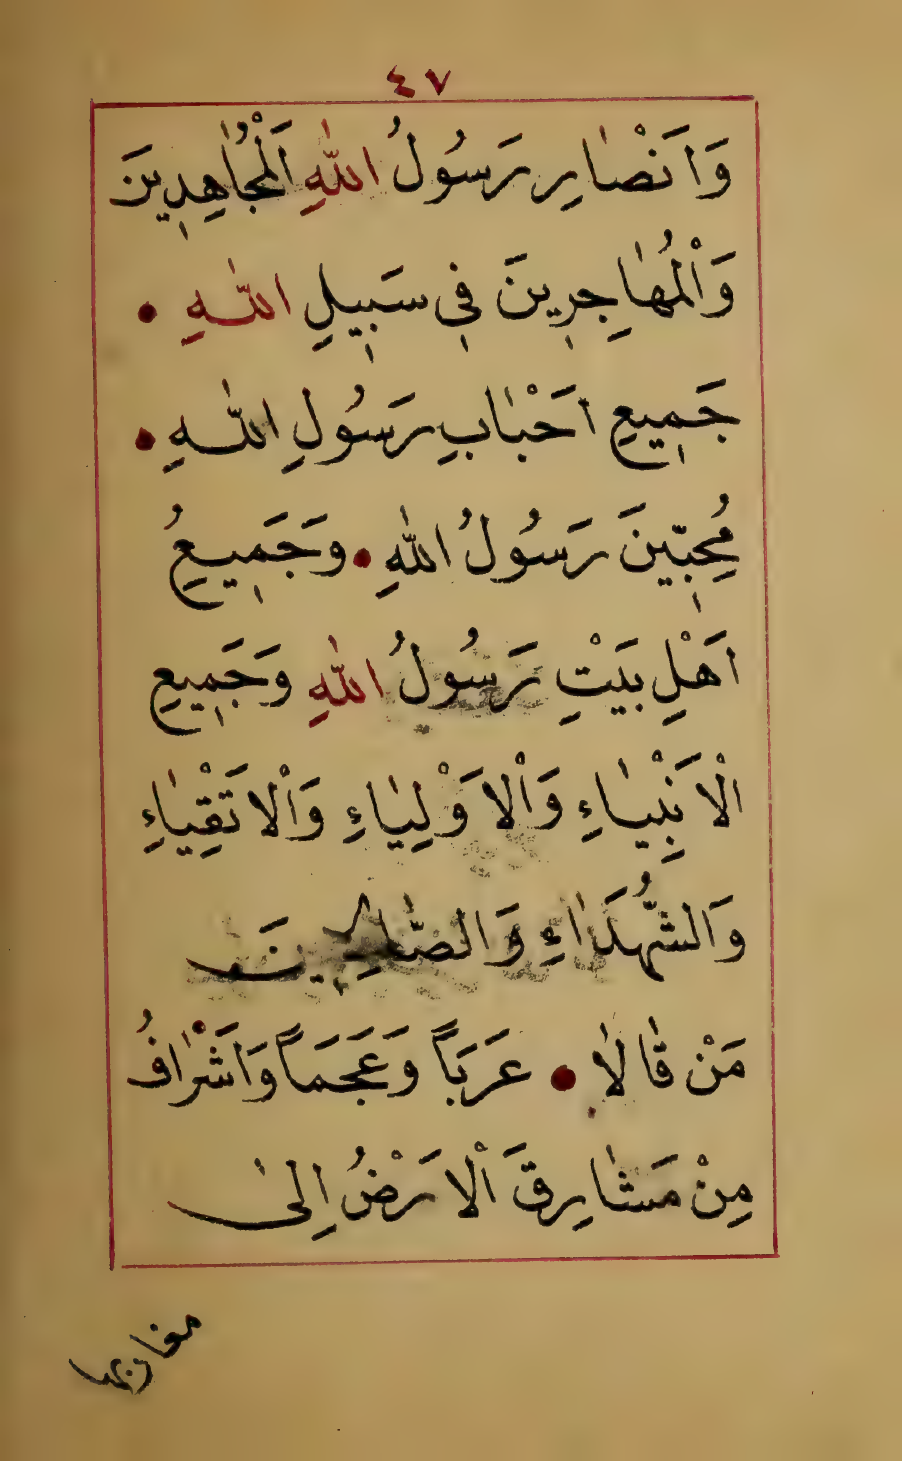 ٤٧
وَاَنْصَارِ رَسُولُ اللهِ الْمُجَاهِدِينَ
وَالْمُهَاجِرِينَ فِي سَبِيلِ اللهِ •
جَمِيعِ اَحْبَابِ رَسُولِ اللهِ •
مُحِبِّينَ رَسُولُ اللهِ • وَجَمِيعُ
اَهْلِ بَيْتِ رَسُولُ اللهِ وَجَمِيعِ
الْاَنْبِيَاءِ وَالْاَوْلِيَاءِ وَالْاَتْقِيَاءِ
وَالشُّهَدَاءِ وَالصَّالِحِينَ
مَنْ قَالَا • عَرَبًا وَعَجَمًا وَاَشْرَافُ
مِنْ مَشَارِقَ الْاَرْضُ اِلٰى
مغاربها